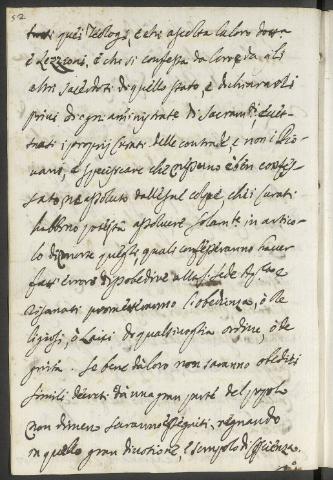 52
tutti quei Teologi, e chi ascolta la loro dottª
è Lezzioni, è chi si confessa da loro, e da gli
altri sacerdoti di quello stato, e dichiararli
privi di ogni aministrat.e di Sacram.ti eccet-
tuati i proprij Curati delle contrade, e non i Pio-
vani, e specificare che nissuno è ben confes-
sato, ne assoluto dalle sue colpe, che i Curati
habbino podestà assoluere solam.te in artico-
lo di morte quegli, quali confesseranno hauer
fatto errore disobedire alla S. Sede Ap.lica e
risanati prometteranno l'obedienza, ò Re
ligiosi, ò Laici di qualsiuoglia ordine, ò di
gnità. Se bene da loro non saranno obediti
simili decreti da una gran parte del popolo
non dimeno saranno eseguiti, regnando
in quello gran diuotione,